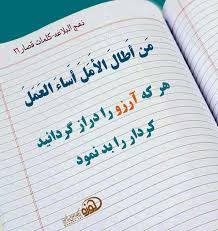 نهج البلاغه، کلمات قصار ۳۶
مَن أَطَالَ الأَمَلَ أَسَاءَ العَمَلَ
هر که آرزو را دراز گردانید
کردار را بد نمود